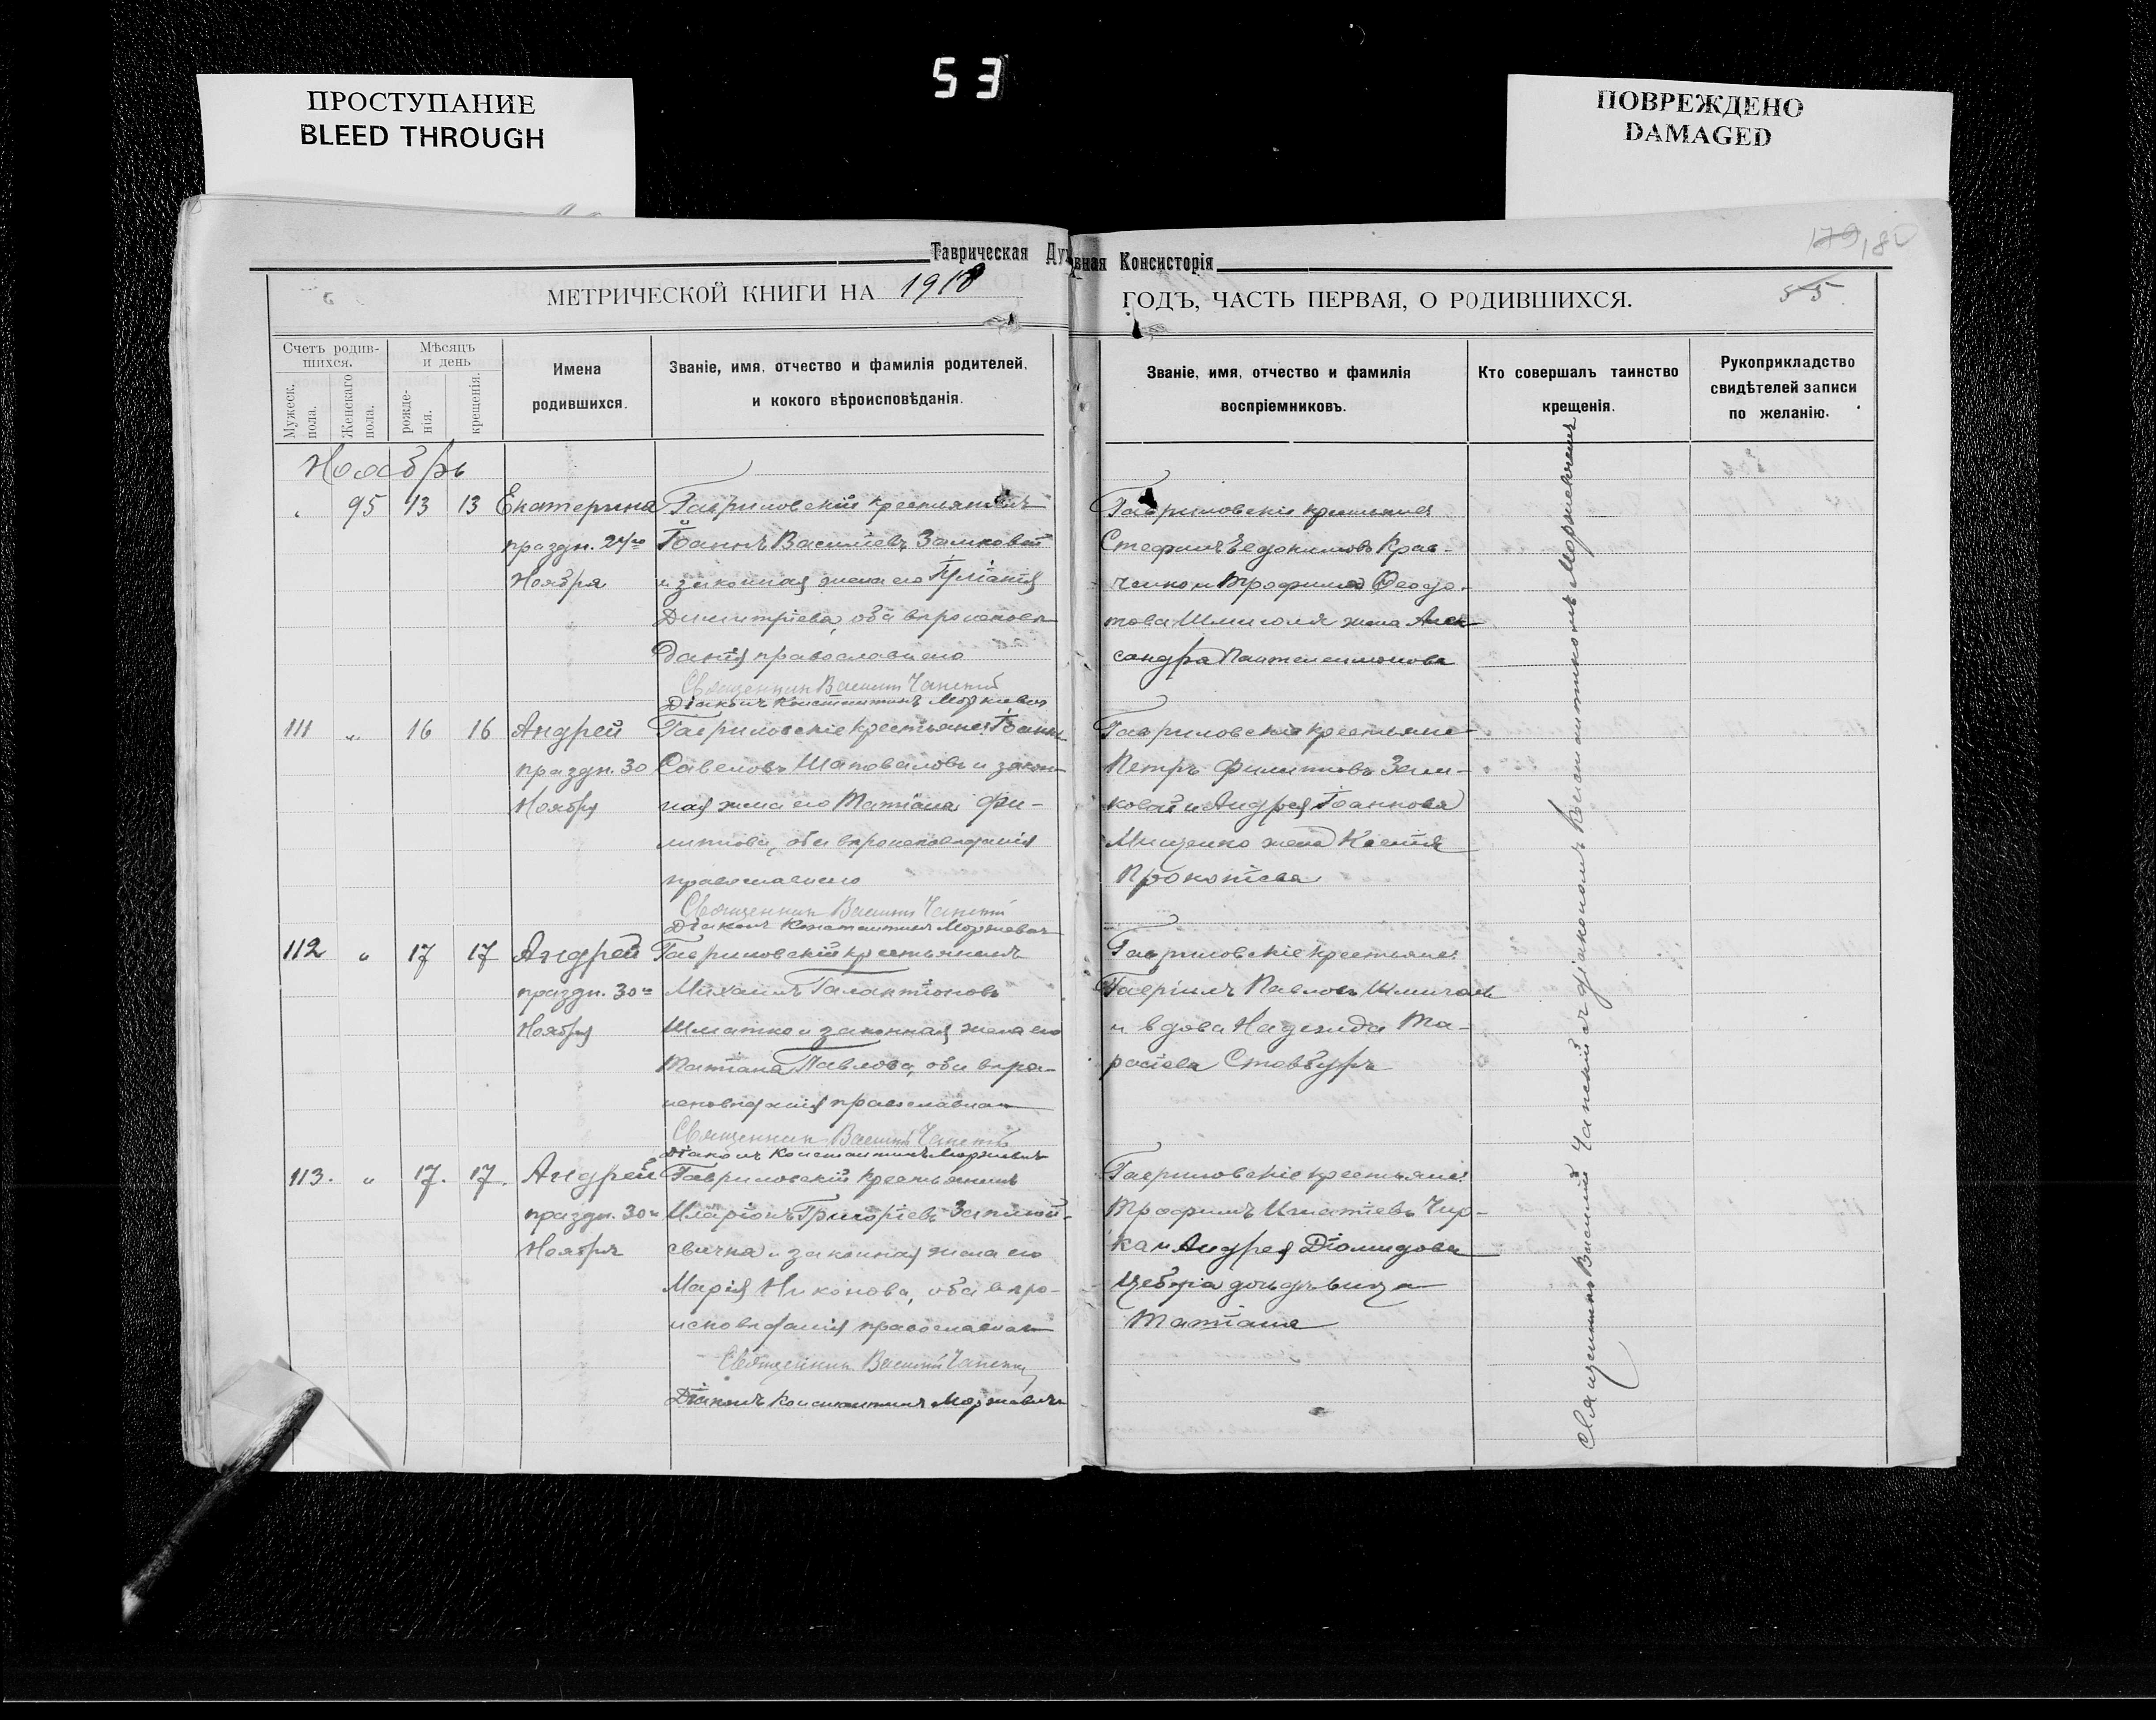 53
ПРОСТУПАНИЕ
BLEED THROUGH
ПОВРЕЖДЕНО
DAMAGED
Таврическая Духовная Консисторія
179, 180
МЕТРИЧЕСКОЙ КНИГИ НА 1918 ГОДЪ, ЧАСТЬ ПЕРВАЯ, О РОДИВШИХСЯ.
55
Счетъ родив-
шихся.
Мужеск.
пола.
Женскаго
пола.
Мѣсяцъ
и день
рожде-
нія.
крещенія.
Имена
родившихся.
Званіе, имя, отчество и фамилія родителей,
и кокого вѣроисповѣданія.
Званіе, имя, отчество и фамилія
воспріемниковъ.
Кто совершалъ таинство
крещенія.
Рукоприкладство
свидѣтелей записи
по желанію.
Ноябрь
95 13 13 Екатерина
праздн. 24го
Ноября
Гавриловскій крестьянинъ
Іоаннъ Василіевъ Замковой
и законная жена его Іуліанія
Димитріева, оба вѣроисповѣ-
данія православнаго
Священник Василій Чапскій
Діаконъ Константинъ Моржевич
Гавриловскіе крестьяне
Стефанъ Евдокимовъ Крав-
ченко и Трофима Ѳеодо-
това Шмиголя жена Алек
сандра Пантелеимонова
111 " 16 16 Андрей
праздн. 30
Ноября
Гавриловскіе крестьяне: Іоаннъ
Савеловъ Шаповаловъ и закон-
ная жена его Татіана Фи-
липпова, оба вѣроисповѣданія
православнаго
Священник Василій Чапскій
Діаконъ Константинъ Моржевич
Гавриловскіе крестьяне
Петръ Филипповъ Зам-
ковой и Андрея Іоаннова
Мищенко жена Ксенія
Прокопіева
112 " 17 17 Андрей
праздн. 30го
Ноября
Гавриловскій крестьянинъ
Михаилъ Галактіоновъ
Шматко и законная жена его
Татіана Павлова, оба вѣро-
исповѣданія православнаго
Священник Василій Чапскій
Діаконъ Константинъ Моржевич
Гавриловскіе крестьяне:
Гавріилъ Павловъ
и вдова Надежда Та-
расіева Стовбуръ
113. " 17. 17. Андрей
праздн. 30го
Ноября
Гавриловскій крестьянинъ
Иларіонъ Григоріевъ
свичка и законная жена его
Марія Никонова, оба вѣро-
исповѣданія православнаго
Священник Василій Чапскій
Діаконъ Константинъ Моржевич
Гавриловскіе крестьяне:
Трофимъ Игнатіевъ Чир-
ка и Андрея Діомидова
дочь дѣвица
Татіана
Священникъ Василій Чапскій съ діакономъ Константиномъ Моржевичемъ